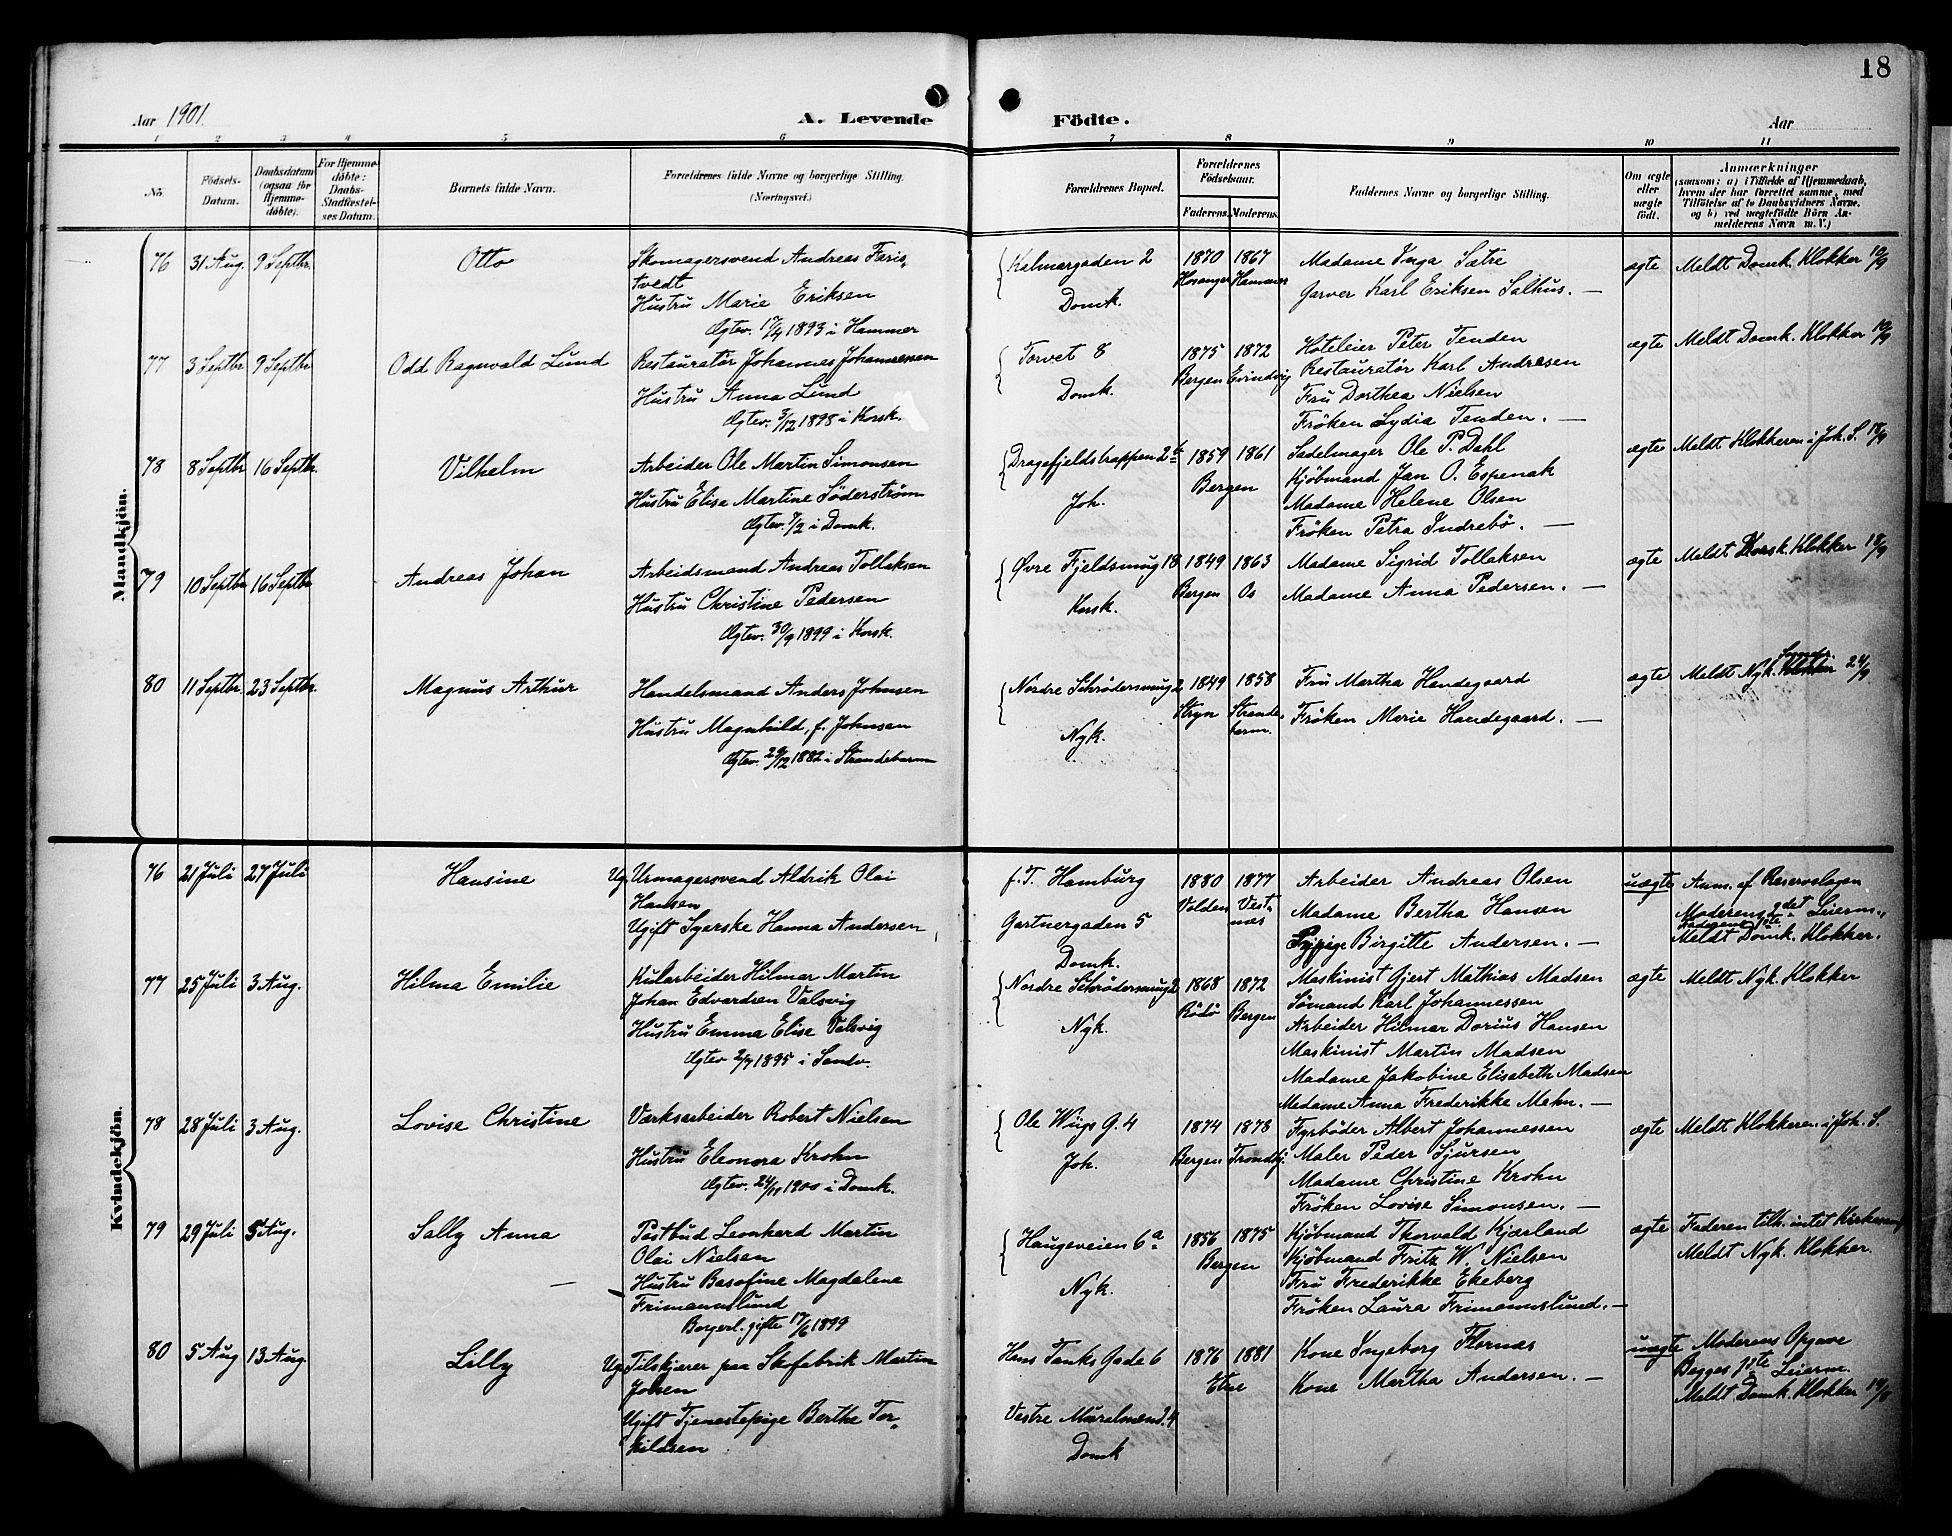 18
Aar 1901.
A. Levende Födte.
Aar
1 2 3 4 5 6 7 8 9 10 11
No.
Födsels-
Datum.
Daabsdatum
(ogsaa for
Hjemme-
döbte).
For Hjemme-
döbte:
Daabs-
Stadfæstel-
ses Datum.
Barnets fulde Navn.
Forældrenes fulde Navne og borgerlige Stilling.
(Næringsvei.)
Forældrenes Bopæl.
Forældrenes
Födselsaar.
Faderens. Moderens.
Faddernes Navne og borgerlige Stilling.
Om ægte
eller
uægte
født.
Anmærkninger
(saasom: a) i Tilfælde af Hjemmedaab,
hvem der har forrettet samme, med
Tilföielse af to Daabsvidners Navne.
og b) ved uægtefödte Börn An-
melderens Navn m. V.)
Mandkjön.
76 31 Aug. 9 Septbr. Otto
Skomagersvend Andreas Faris-
tvedt
Hustru Marie Eriksen
Ægtev. 17/4 1893 i Hammer
Kalmargaden 2
Domk.
1870 1867
Hosanger Hammer
Madame Inga Sætre
Garver Karl Eriksen Salhus. —
ægte Meldt Domk. Klokker 10/9
77 3 Septbr 9 Septbr. Odd Ragnvald Lund
Restauratør Johannes Johannesen
Hustru Anna Lund
Ægtev. 3/12 1898 i Korsk.
Torvet 8
Domk.
1875 1872
Bergen Evindvig
Hoteleier Peter Tenden
Restauratør Karl Andresen
Fru Dorthea Nielsen
Frøken Lydia Tenden. —
ægte Meldt Domk. Klokker 10/9
78 8 Septbr 16 Septbr. Vilhelm
Arbeider Ole Martin Simonsen
Hustru Elise Martine Söderström
Ægtev. 7/2 i Domk.
Dragefjeldstrappen 2b
Joh.
1859 1861
Bergen
Sadelmager Ole P. Dahl
Kjøbmand Jan O. Espenak
Madame Helene Olsen
Frøken Petra Indrebö. —
ægte Meldt Klokkeren i Joh. S. 18/9
79 10 Septbr 16 Septbr. Andreas Johan
Arbeidsmand Andreas Tollaksen
Hustru Christine Pedersen
Ægtev. 30/9 1899 i Korsk.
Øvre Fjeldsmug 18
Korsk.
1849 1863
Bergen Os
Madame Sigrid Tollaksen
Madame Anna Pedersen. —
ægte Meldt Korsk. Klokker 18/9
80 11 Septbr. 23 Septbr. Magnus Arthur
Handelsmand Anders Johnsen
Hustru Magnhild, f. Johnsen
Ægtev. 29/12 1882 i Strandebarm
Nordre Schrödersmug 2
Nyk.
1849 1858
Stryn Strande-
barm.
Fru Martha Handegaard
Frøken Marie Handegaard. —
ægte Meldt Nyk. 24/9
Kvindekjön.
76 21 Juli 27 Juli Hansine
Ug. Urmagersvend Aldrik Olai
Hansen
Ugift Syerske Hanna Andersen
f. T. Hamburg
Gartnergaden 5
Domk.
1880 1877
Volden Vest-
nes
Arbeider Andreas Olsen
Madame Bertha Hansen
Sypige Birgitte Andersen. —
uægte Anm. af Reservelægen
Moderens 2det Leierm.,
Faderens 1ste
Meldt Domk. Klokker.
77 25 Juli 3 Aug. Hilma Emilie
Kularbeider Hilmar Martin
Johan Edvardsen Valsvig
Hustru Emma Elise Valsvig
Ægtev 2/7 1895 i Sandv.
Nordre Schrödersmug 2
Nyk.
1868 1872
Rödö Bergen
Maskinist Gjert Mathias Madsen
Sömand Karl Johannessen
Arbeider Hilmar Dorius Hansen
Maskinist Martin Madsen
Madame Jakobine Elisabeth Madsen
Madame Anna Frederikke Mehn. —
ægte Meldt Nyk. Klokker
78 28 Juli 3 Aug. Lovise Christine
Værksarbeider Robert Nielsen
Hustru Eleonora Krohn
Ægtev. 24/11 1900 i Domk.
Ole Wiigs G. 4
Joh.
1874 1878
Bergen Trondhj.
Fyrböder Albert Johannessen
Maler Peder Sjursen
Madame Christine Krohn
Frøken Lovise Simonsen. —
ægte Meldt Klokkeren i Joh. S.
79 29 Juli 5 Aug. Sally Anna
Postbud Leonhard Martin
Olai Nielsen
Hustru Basofine Magdalene
Frimannslund
Borgerl. gifte 17/6 1899
Haugeveien 6a
Nyk.
1856 1875
Bergen
Kjöbmand Thorvald Kjærland
Kjöbmand Fritz W. Nielsen
Fru Frederikke Ekeberg
Frøken Laura Frimannslund. —
ægte Faderen tilh. intet Kirkesamf.
Meldt Nyk. Klokker.
80 5 Aug 13 Aug. Lilly
Ug. Tilskjærer paa Skofabrik Martin
Johen
Ugift Tjenestepige Berthe Tor-
kildsen
Hans Tanks Gade 6
Vestre Muralmend. 4
Domk
1876 1881
Etne
Kone Ingeborg Flornæs
Kone Martha Andersen. —
uægte Moderens Opgave
Begges 1ste Leierm.
Meldt Domk. Klokker 14/8